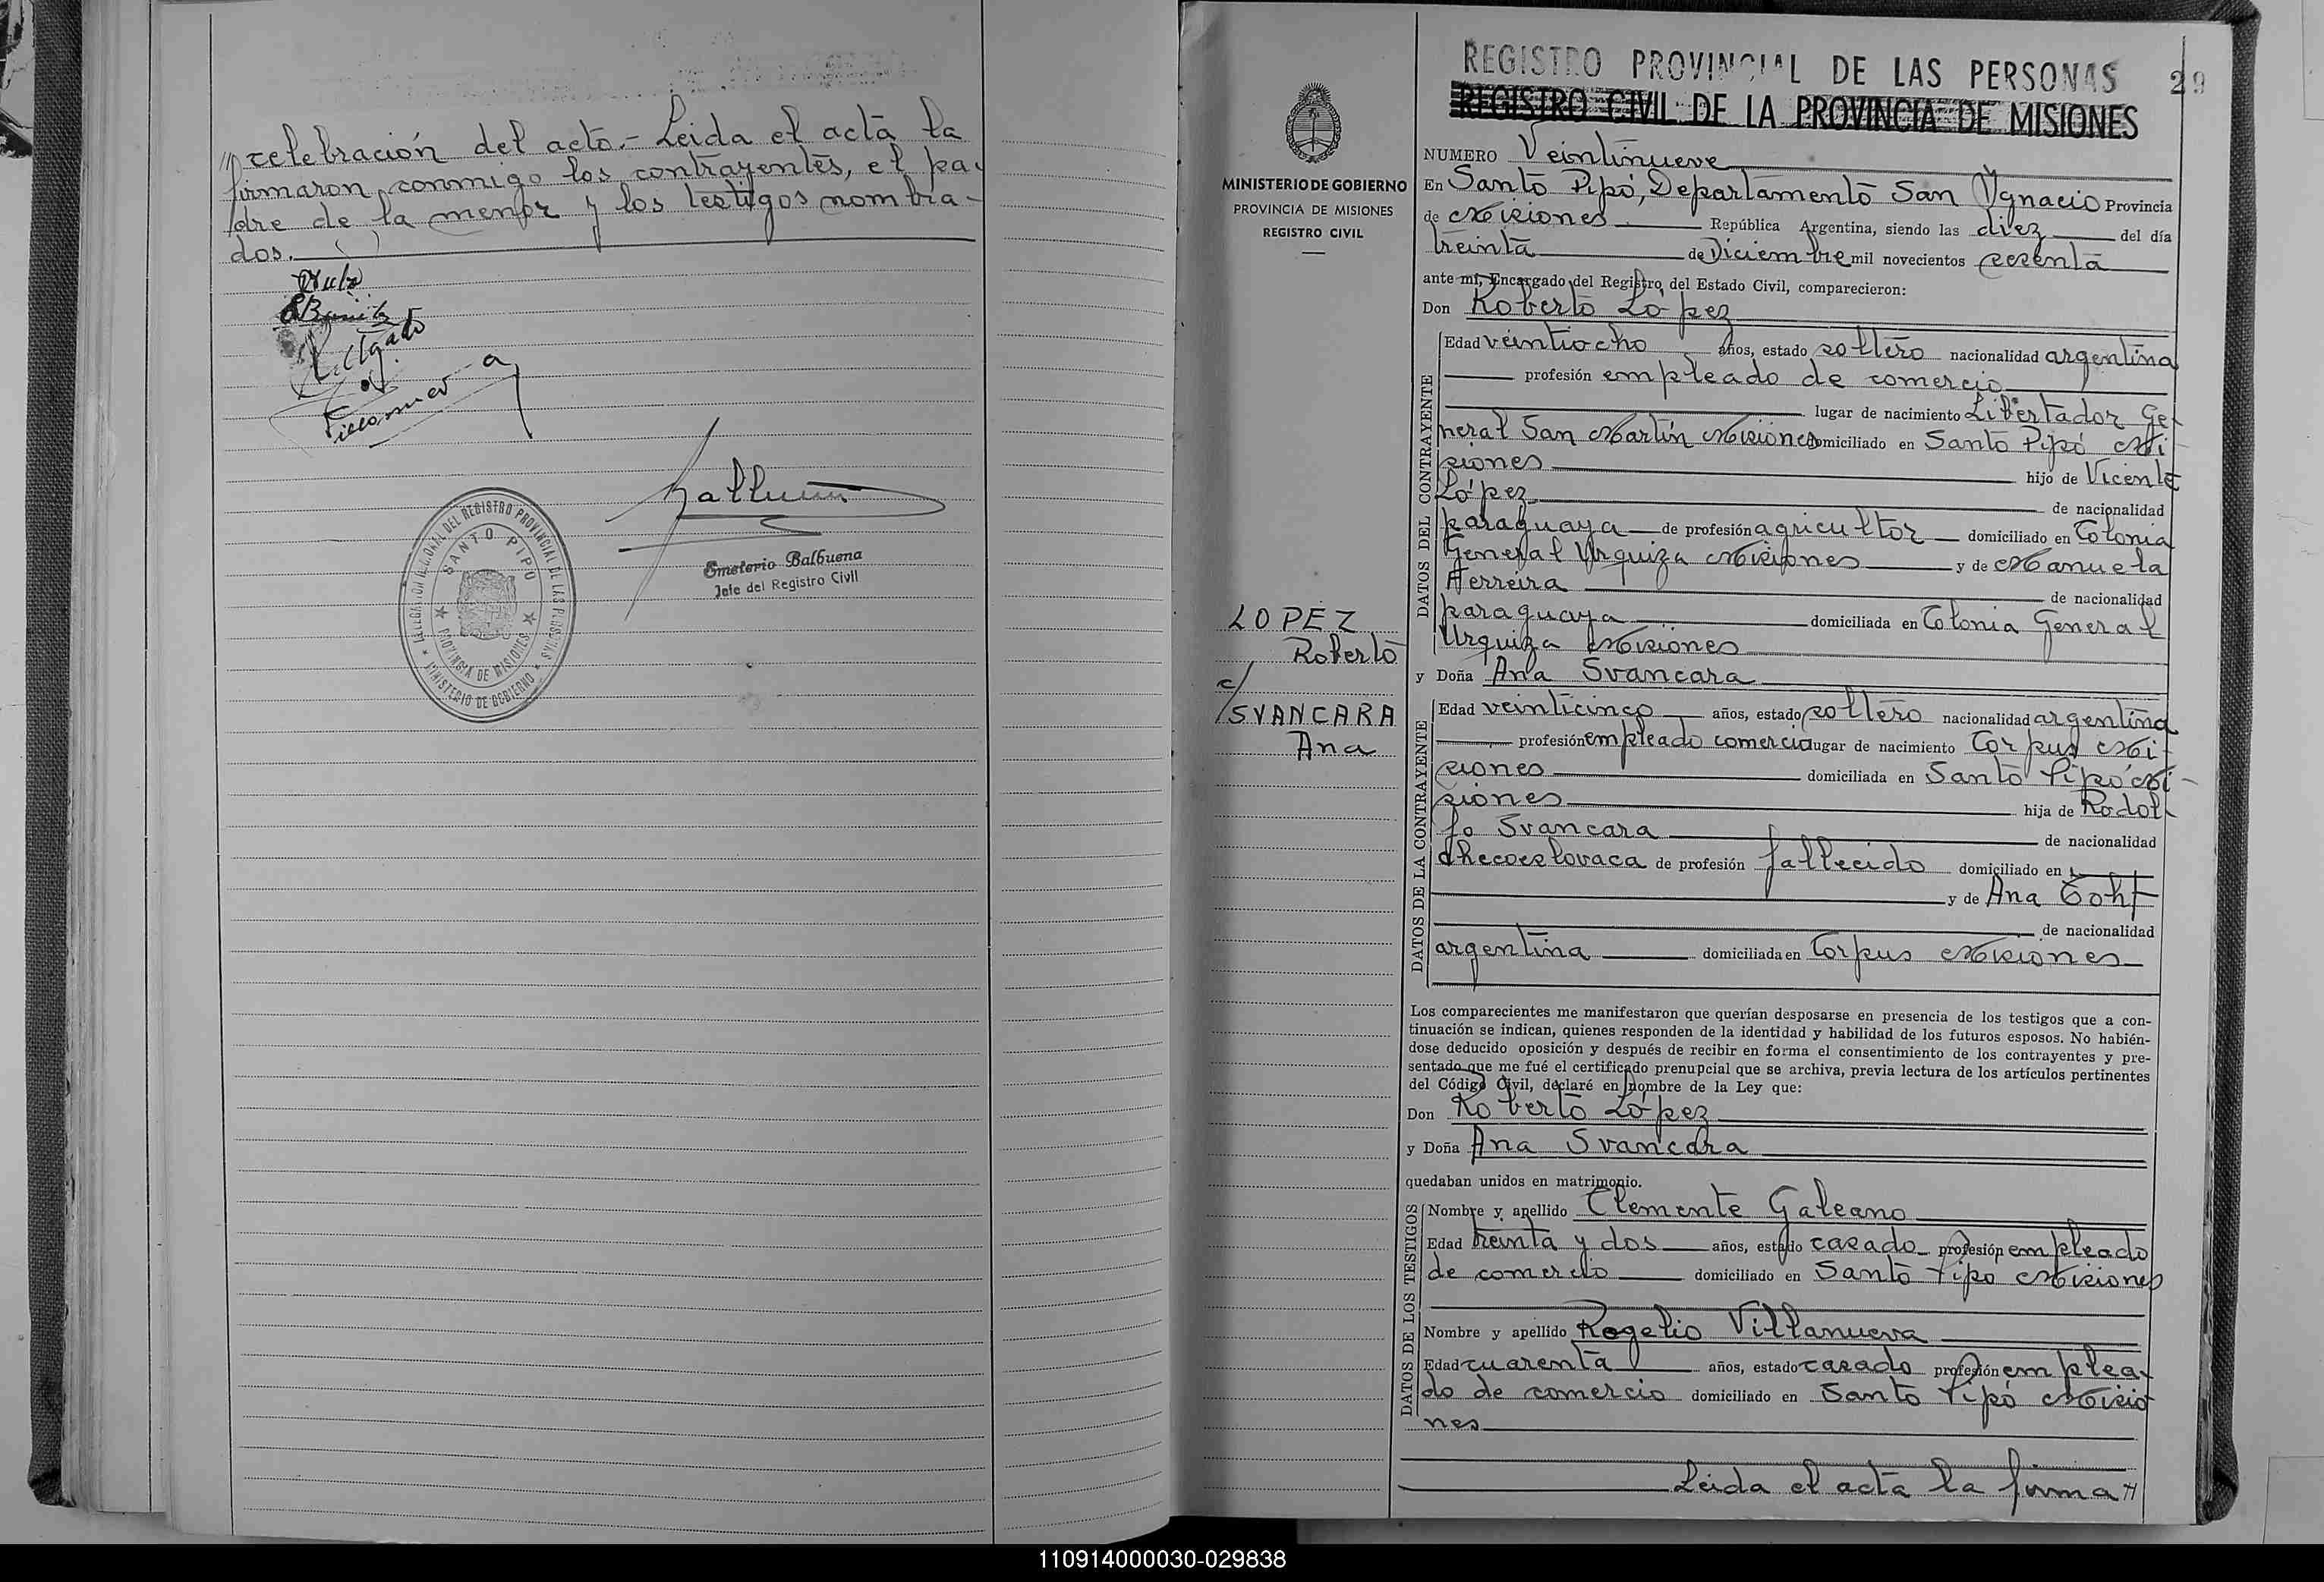 celebración del acto.- Leida el acta la
firmaron conmigo los contrayentes, el pa-
dre de la menor y los testigos nombra-
dos.
Emeterio Balbuena
Jefe del Registro Civil
DEL REGISTRO PROVINCIAL DE LAS PERSONAS
SANTO PIPO
PROVINCIA DE MISIONES
MINISTERIO DE GOBIERNO
MINISTERIO DE GOBIERNO
PROVINCIA DE MISIONES
REGISTRO CIVIL
LOPEZ
Roberto
c/
SVANCARA
Ana
REGISTRO PROVINCIAL DE LAS PERSONAS 29
REGISTRO CIVIL DE LA PROVINCIA DE MISIONES
NUMERO Veintinueve
En Santo Pipó, Departamento San Ygnacio Provincia
de Misiones República Argentina, siendo las diez del día
treinta de Diciembre mil novecientos sesenta
ante mí, Encargado del Registro del Estado Civil, comparecieron:
Don Roberto López
DATOS DEL CONTRAYENTE
Edad veintiocho años, estado soltero nacionalidad argentina
profesión empleado de comercio
lugar de nacimiento Libertador Ge-
neral San Martín Misiones domiciliado en Santo Pipó Mi-
siones hijo de Vicente
López de nacionalidad
paraguaya de profesión agricultor domiciliado en Colonia
General Urquiza Misiones y de Manuela
Ferreira de nacionalidad
paraguaya domiciliada en Colonia General
Urquiza Misiones
y Doña Ana Svancara
DATOS DE LA CONTRAYENTE
Edad veinticinco años, estado soltero nacionalidad argentina
profesión empleado comercio lugar de nacimiento Corpus Mi-
siones domiciliada en Santo Pipó Mi-
siones hija de Rodol-
fo Svancara de nacionalidad
checoeslovaca de profesión fallecido domiciliado en
y de Ana
de nacionalidad
argentina domiciliada en Corpus Misiones
Los comparecientes me manifestaron que querían desposarse en presencia de los testigos que a con-
tinuación se indican, quienes responden de la identidad y habilidad de los futuros esposos. No habién-
dose deducido oposición y después de recibir en forma el consentimiento de los contrayentes y pre-
sentado que me fué el certificado prenupcial que se archiva, previa lectura de los artículos pertinentes
del Código Civil, declaré en nombre de la Ley que:
Don Roberto López
y Doña Ana Svancara
quedaban unidos en matrimonio.
DATOS DE LOS TESTIGOS
Nombre y apellido Clemente Galeano
Edad treinta y dos años, estado casado profesión empleado
de comercio domiciliado en Santo Pipo Misiones
Nombre y apellido Rogelio Villanueva
Edad cuarenta años, estado casado profesión emplea-
do de comercio domiciliado en Santo Pipó Misio-
nes
Leida el acta la firma//
110914000030-029838